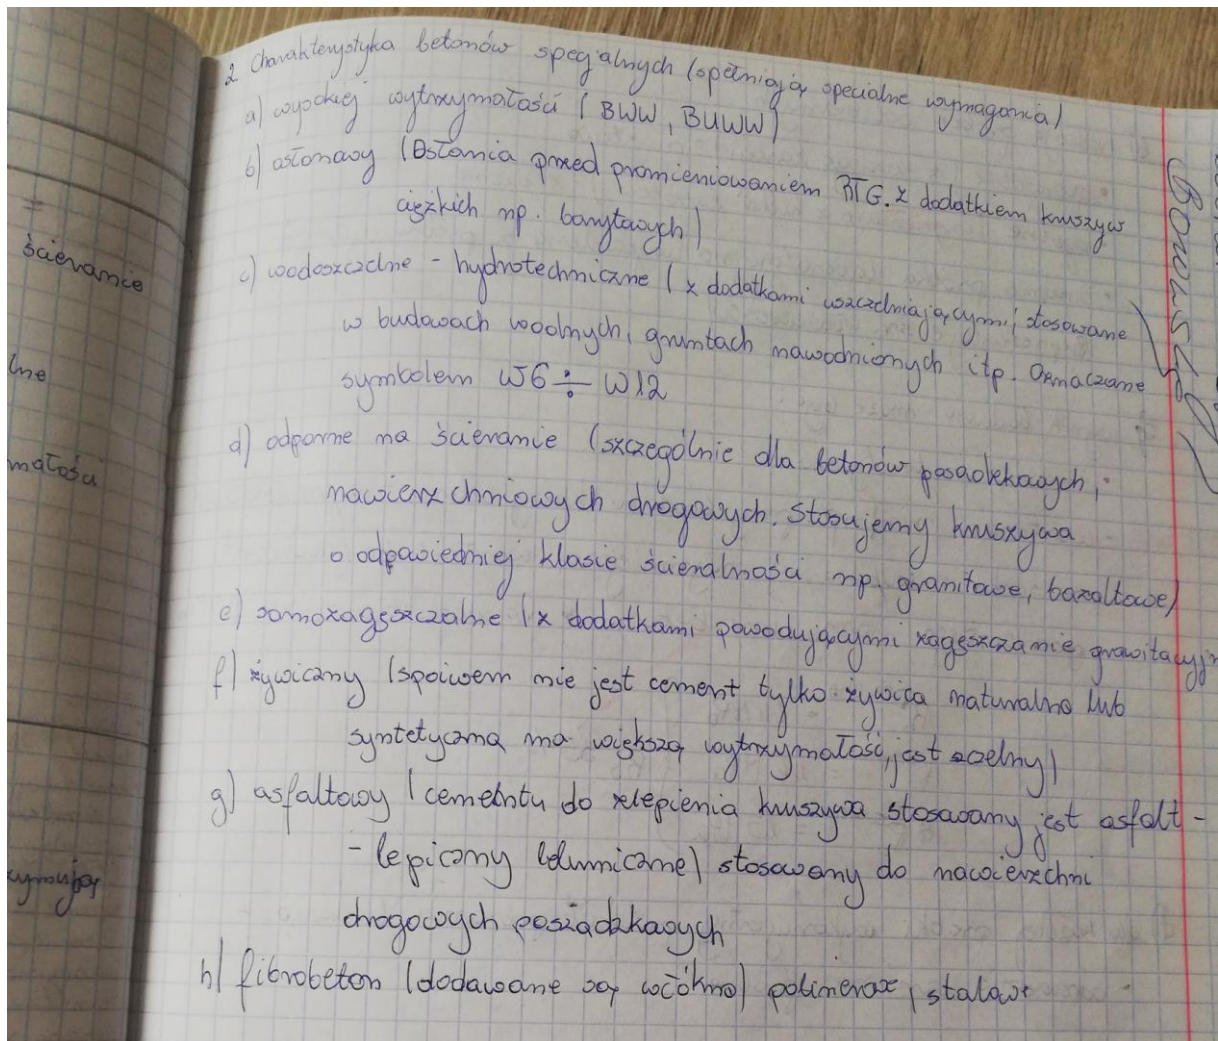 2. Charakterystyka betonów specjalnych (spełniają specialne wymagania)
a) wysokiej wytrzymałości (BWW, BUWW)
b) osłonowy (Osłania przed promieniowaniem RTG. z dodatkiem kruszyw
ciężkich np. barytowych)
c) wodoszczelne - hydrotechniczne (z dodatkami uszczelniającymi, stosowane
w budowach wodnych, gruntach nawodnionych itp. Oznaczane
symbolem W6 ÷ W12
d) odporne na ścieranie (szczególnie dla betonów posadzkowych,
nawierzchniowych drogowych. Stosujemy kruszywa
o odpowiedniej klasie ścieralności np. granitowe, bazaltowe)
e) samozagęszczalne (z dodatkami powodującymi zagęszczanie
f) żywiczny (spoiwem nie jest cement tylko żywica naturalna lub
syntetyczna ma większą wytrzymałość, jest szczelny)
g) asfaltowy (cementu do zlepienia kruszywa stosowany jest asfalt -
- lepiczny stosowany do nawierzchni
drogowych posiadzkowych
h) fibrobeton (dodawane są włókna) polimerowe, stalowe
ścieranie
lne
małości